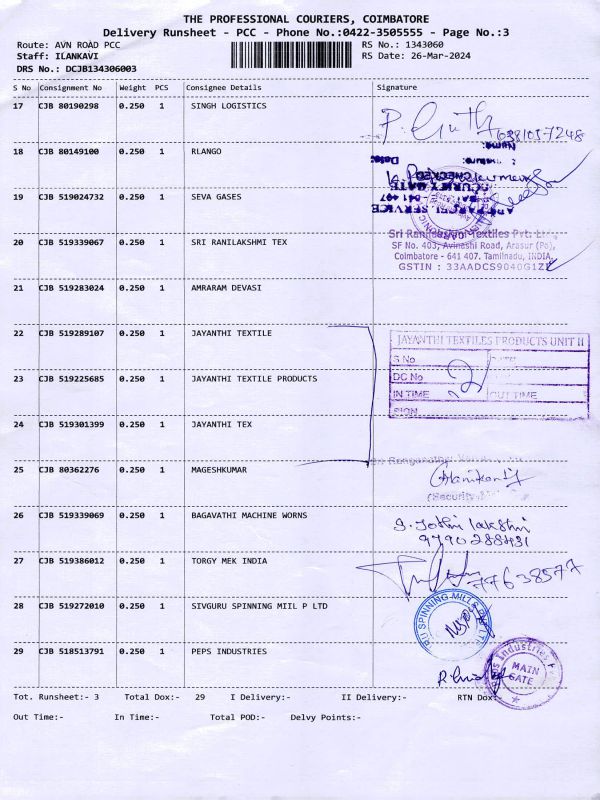 THE PROFESSIONAL COURIERS, COIMBATORE
Delivery Runsheet - PCC - Phone No.:0422-3505555 - Page No.:3
Route: AVN ROAD PCC
RS No.: 1343060
Staff: ILANKAVI
RS Date: 26-Mar-2024
DRS No.: DCJB134306003
S No Consignment No Weight PCS Consignee Details Signature
17 CJB 80190298 0.250 1 SINGH LOGISTICS
18 CJB 80149100 0.250 1 RLANGO
19 CJB 519024732 0.250 1 SEVA GASES
20 CJB 519339067 0.250 1 SRI RANILAKSHMI TEX
SF No. 403, Avinashi Road, Arasur (Po),
Coimbatore - 641 407. Tamilnadu, INDIA.
GSTIN : 33AADCS9040G1Z
21 CJB 519283024 0.250 1 AMRARAM DEVASI
22 CJB 519289107 0.250 1 JAYANTHI TEXTILE
JAYANTHI TEXTILES PRODUCTS UNIT II
S No
DATE
DC No
21
IN TIME OUT TIME
SIGN
23 CJB 519225685 0.250 1 JAYANTHI TEXTILE PRODUCTS
24 CJB 519301399 0.250 1 JAYANTHI TEX
25 CJB 80362276 0.250 1 MAGESHKUMAR
(Security
26 CJB 519339069 0.250 1 BAGAVATHI MACHINE WORNS
J. Jothi lakshmi
9790288431
27 CJB 519386012 0.250 1 TORGY MEK INDIA
77638577
28 CJB 519272010 0.250 1 SIVGURU SPINNING MIIL P LTD
SPINNING MILLS
29 CJB 518513791 0.250 1 PEPS INDUSTRIES
Industries
MAIN
GATE
Tot. Runsheet:- 3 Total Dox:- 29 I Delivery:- II Delivery:- RTN Dox:-
Out Time:- In Time:- Total POD:- Delvy Points:-